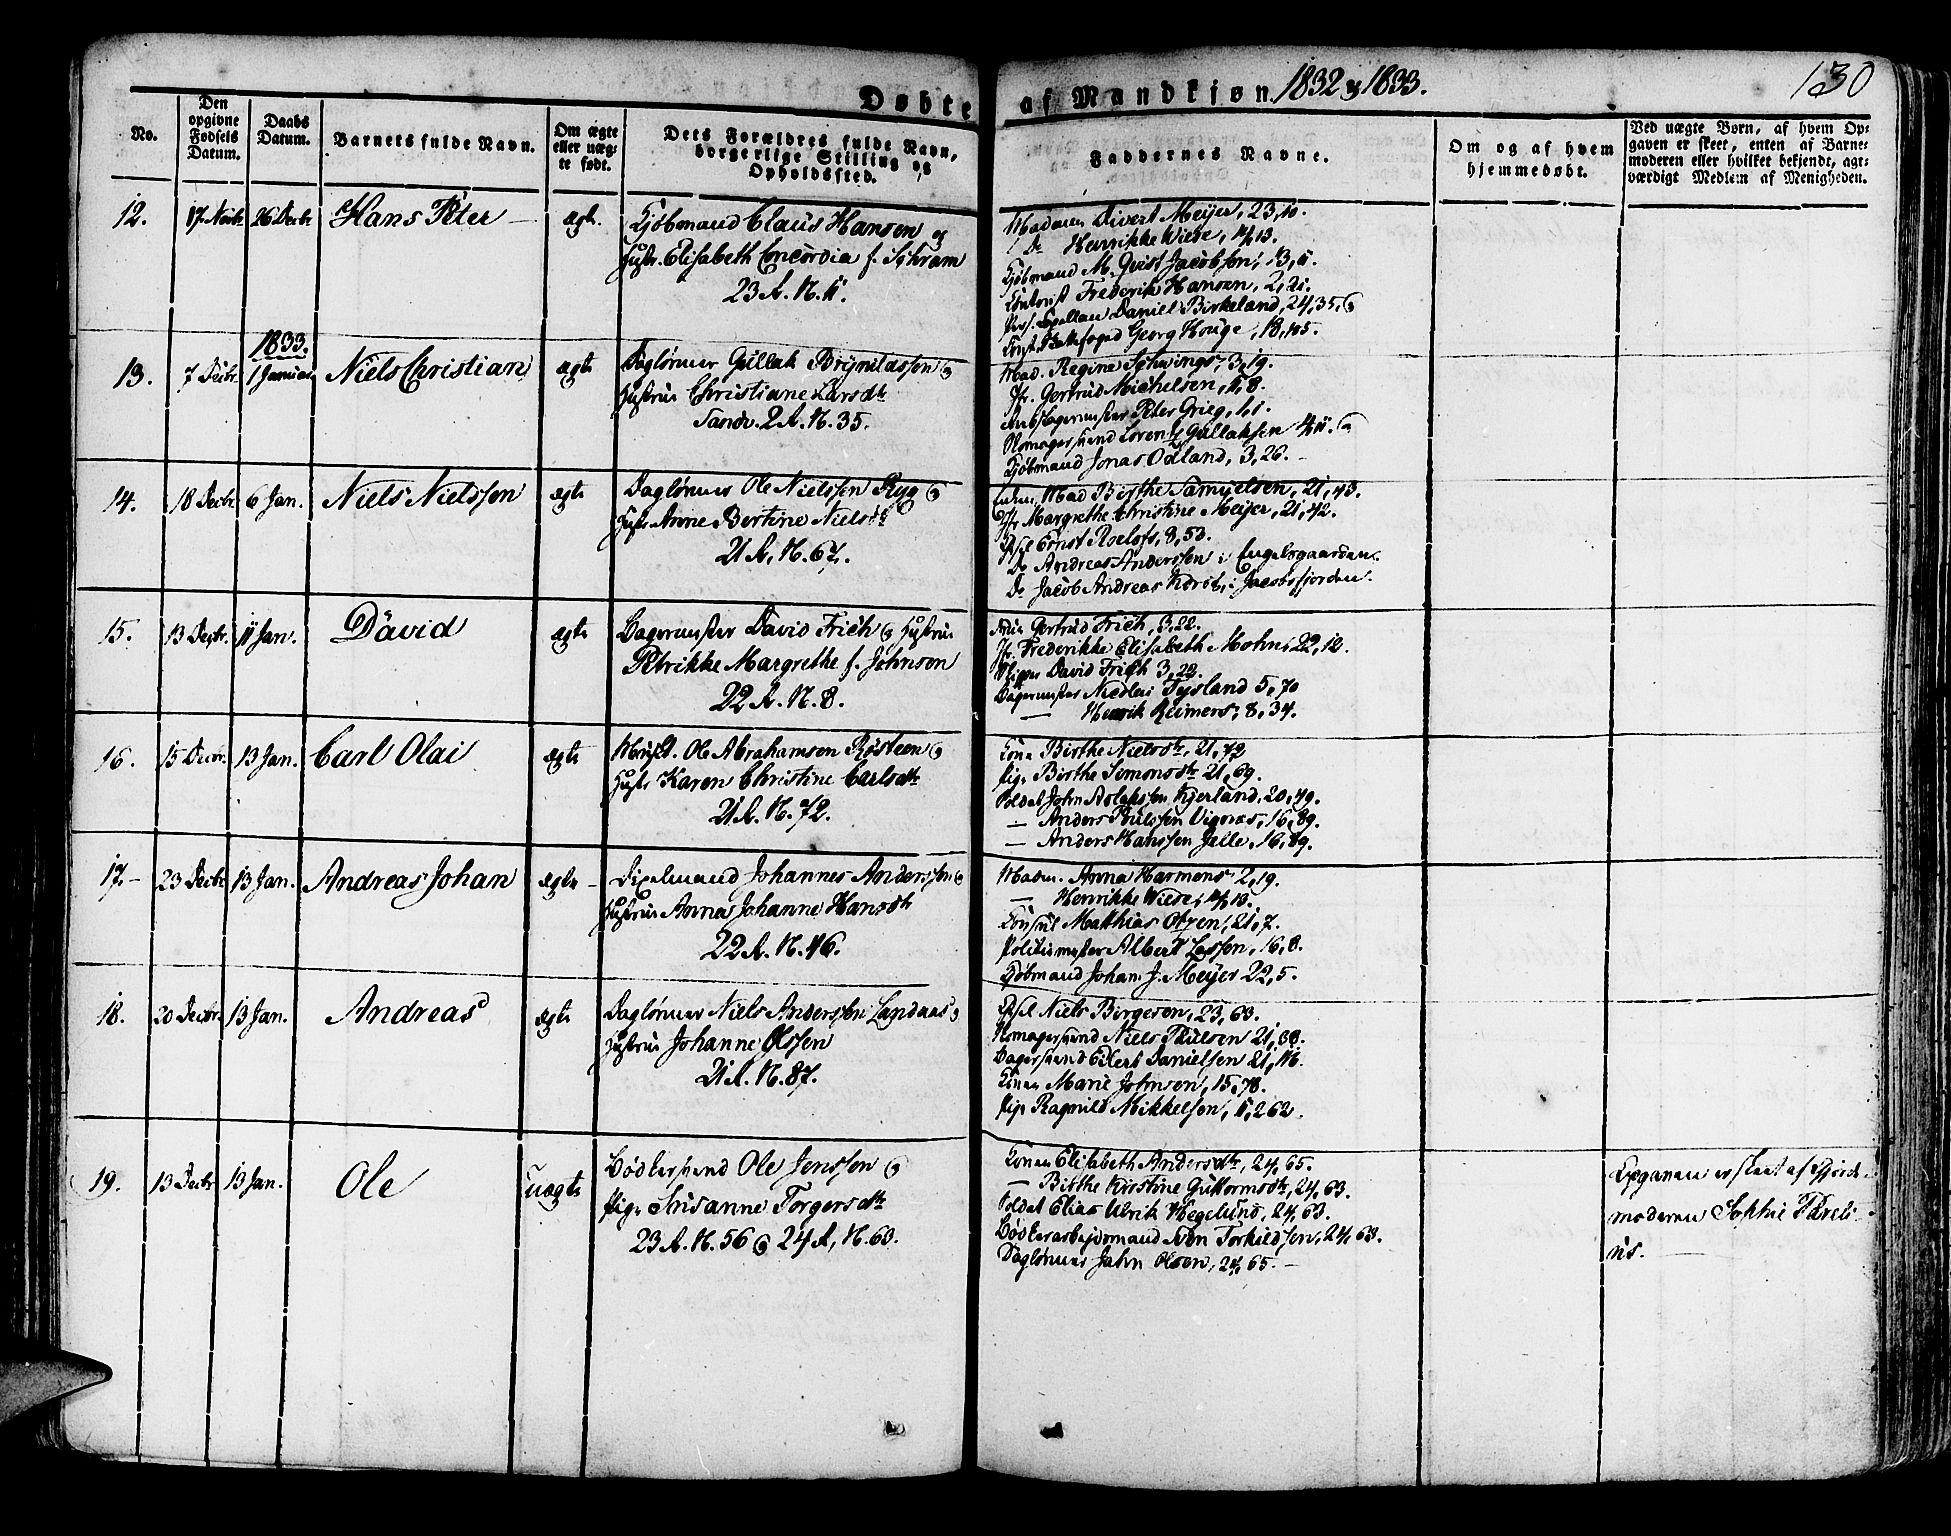 Døbte af Mandkjøn 1832 & 1833.
130
No.
Den opgivne Fødsels Datum.
Daabs Datum.
Barnets fulde Navn.
Om ægte eller uægte født.
Dets Forældres fulde Navn, borgerlige Stilling og Opholdssted.
Faddernes Navne.
Om og af hvem hjemmedøbt.
Ved uægte Børn, af hvem Opgaven er skeet, enten af Barnemoderen eller hvilket bekjendt, agtværdigt Medlem af Menigheden.
12. 17 Novbr 26 Decbr Hans Peter ægte.
Kjøbmand Claus Hansen og
Hustr. Elisabeth Concordia f. Schram
23 R. N. 11.
Madame Divert Meijer, 23, 10.
Do Henrikke Wiese, 4, 13.
Kjøbmand M. Qvist Jacobsen, 13, 11.
Frederik Hansen, 2, 21.
Pers. Capellan Daniel Birkeland, 24, 35, &
Georg Houge, 18, 105.
1833.
13. 7 Decbr. 1 Januar Niels Christian ægte
Daglønner Gullak Brynildssen &
Hustrue Christiane Larsdtr
Sandv. 2 R. N. 35.
Mad. Regine Schwings, 3, 19.
Jfr. Gertrud Michelsen, 11, 8.
Peter Grieg, 1, 1.
Skomagersvend Lorentz Gullaksen 4, 11. &
Kjøbmand Jonas Odland, 3, 26. -
14. 18 Decbr 6 Jan. Niels Nielssen ægte
Daglønner Ole Nielssen Ryg &
Hustr Anne Bertine Nielsdtr
21 R. N. 67.
Enken, Mad Birthe Samuelsen, 21, 43.
Jfr Margrethe Christine Meijer, 21, 42.
Ernst Roelofs, 8, 53.
Do Andreas Anderssen i Engelsgaarden.
Do Jacob Andreas Korøe, i Jacobsfjorden.
15. 13 Decbr. 11 Jan. David ægte
Bagermester David Frich & Hustrue
Petrikke Margrethe f. Johnson
22 R. N. 8.
Gertrud Frich, 3, 22.
Jfr. Frederikke Elisabeth Mohn, 22, 12.
Skipper David Frich 3, 22.
Bagermester Nicolai Tysland 5, 70
— Henrik Reimers, 8, 34.
16. 15 Decbr. 13 Jan. Carl Olai ægte
Ole Abrahamsen Røsteen &
Hustr Karen Christine Carlsdtr
21 R. N. 72.
Kone Birthe Nielsdtr, 21, 72
Pige Birthe Simonsdtr 21, 69.
Soldat John Aslaksen Kjerland, 20, 49.
— Anders Poulssen Vigenæs, 16, 89.
— Anders Hanssen Jelle, 16, 89.
17.- 23 Decbr 13 Jan. Andreas Johan ægte -
Johannes Anderssen &
Hustrue Anna Johanne Hansdtr
22 R. N. 46.
Madm. Anna Harmens 2, 19.
— Henrikke Wiese, 4, 13.
Konsul Matthias Olsen, 21, 7.
Politiemester Albert Lassen, 16, 8.
Kjøbmand Johan J. Meijer 22, 5.
18. 20 Decbr. 13 Jan. Andreas ægte
Daglønner Niels Anderssen Landaas &
Hustrue Johanne Olssen
21 R. N. 87.
Niels Birgeson, 23, 63.
Skomagersvend Niels Poulsen 21, 88.
Bagersvend Eilert Danielsen 21, 116.
Konen Marie Johnsen, 15, 78.
Pige Ragnild Mikkelsen, 11, 262.
19. 13 Decbr 13 Jan. Ole uægte
Bødkersvend Ole Jenssen &
Pige Susanne Torgersdtr
23 R. N. 56 & 24 R, N. 63.
Konen Elisabeth Andersdtr, 24, 65.
— Birthe Kirstine Guttormsdtr, 24, 63.
Soldat Elias Ulrik Hegelund, 24, 63.
Bødkerarbejdsmand Sven Torkildsen, 24, 63.
Daglønner Jahn Olsen, 24, 65. —
Opgaven er skeet af Gjorde-
moderen Sophie Pareli-
us. —